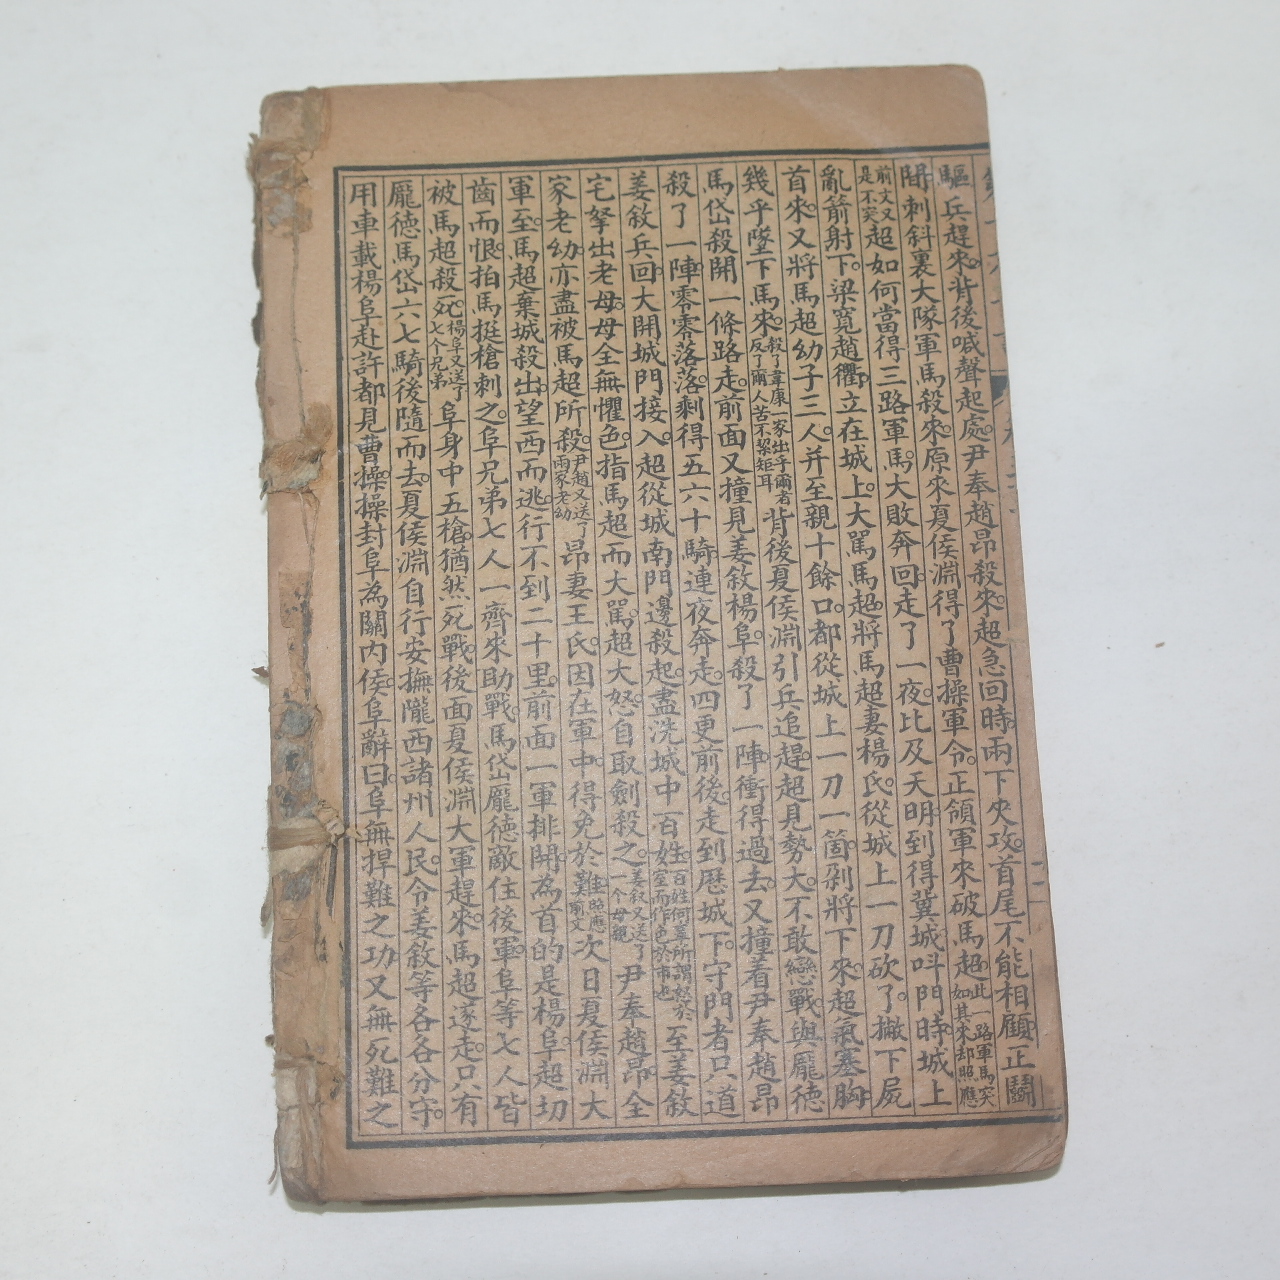 驅兵趕來。背後喊聲起處。尹奉趙昂殺來。超急回時。兩下夾攻。首尾不能相顧。正鬬
間刺斜裏大隊軍馬殺來。原來夏侯淵得了曹操軍令。正領軍來破馬超。此一路軍馬突如其來却照應
前文又是不突超如何當得三路軍馬。大敗奔回。走了一夜。比及天明。到得冀城叫門時。城上
亂箭射下。梁寬趙衢。立在城上。大罵馬超。將馬超妻楊氏。從城上一刀砍了。撇下屍
首來。又將馬超幼子三人。并至親十餘口。都從城上一刀一箇。剁將下來。超氣塞胸
幾乎墜下馬來。殺了韋康一家出乎爾者反了爾人苦不絜矩耳背後夏侯淵引兵追趕。超見勢大。不敢戀戰。與龐德
馬岱殺開一條路走。前面又撞見姜敘楊阜。殺了一陣。衝得過去。又撞着尹奉趙昂
殺了一陣。零零落落。剩得五六十騎。連夜奔走。四更前後。走到歷城下。守門者只道
姜敘兵回。大開城門接入。超從城南門邊殺起。盡洗城中百姓。百姓何罪所謂怒於室而作色於市也至姜敘
宅拏出老母。母全無懼色。指馬超而大罵。超大怒。自取劍殺之。姜敘又送了一个母親尹奉趙昂。全
家老幼。亦盡被馬超所殺。尹趙又送了兩家老幼昂妻王氏。因在軍中。得免於難。照應前文次日夏侯淵大
軍至。馬超棄城殺出。望西而逃。行不到二十里。前面一軍排開。為首的是楊阜。超切
齒而恨。拍馬挺槍刺之。阜兄弟七人。一齊來助戰。馬岱龐德敵住後軍。阜等七人。皆
被馬超殺死。楊阜又送了七个兄弟阜身中五槍。猶然死戰。後面夏侯淵大軍趕來。馬超遂走。只有
龐德馬岱六七騎後隨而去。夏侯淵自行安撫隴西諸州人民。令姜敘等各各分守。
用車載楊阜赴許都見曹操。操封阜為關內侯。阜辭曰。阜無捍難之功。又無死難之